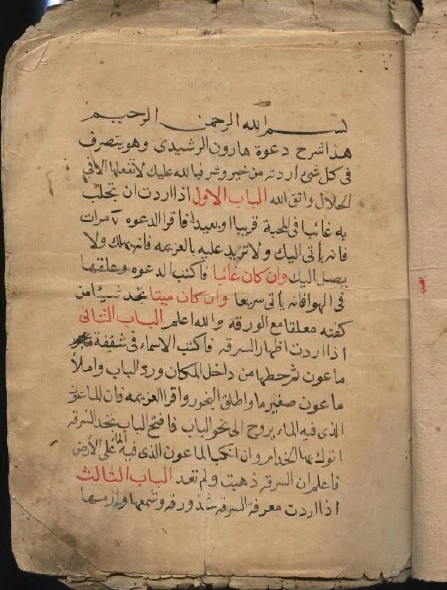 بسم الله الرحمن الرحيم
هذا شرح دعوة هارون الرشيدى وهو يتصرف
فى كل شئ اردته من خير وشر فبالله عليك لا تفعلها الا فى
الحلال واتق الله الباب الاول اذا اردت ان تجلب
به غائبا فى المحبة قريبا او بعيدا فاقرا الدعوه مرات
فانه يأتى اليك ولا تزيد عليه بالعزيمه فانه يهلك ولا
يصل اليك وان كان غائبا فاكتب الدعوه وعلقها
فى الهوا فانه يأتى سريعا وان كان ميتا تجد شيئا من
كفنه معلقا مع الورقه والله اعلم الباب الثانى
اذا اردت اظهار السرقه فاكتب الاسماء فى شقفة
ماعون ثم حطها من داخل المكان ورد الباب واملأ
ماعون صغير ما واطلق البخور واقرا العزيمه فان الماعون
الذى فيه الماء يروح الى نحو الباب فافتح الباب تجد السرقه
اتوك بها الخدام وان انكب الماعون الذى فيه الماء على الأرض
فاعلم ان السرقه ذهبت ولم تعد الباب الثالث
اذا اردت معرفة السرقه خذ ورقه وشمعها وارسمها